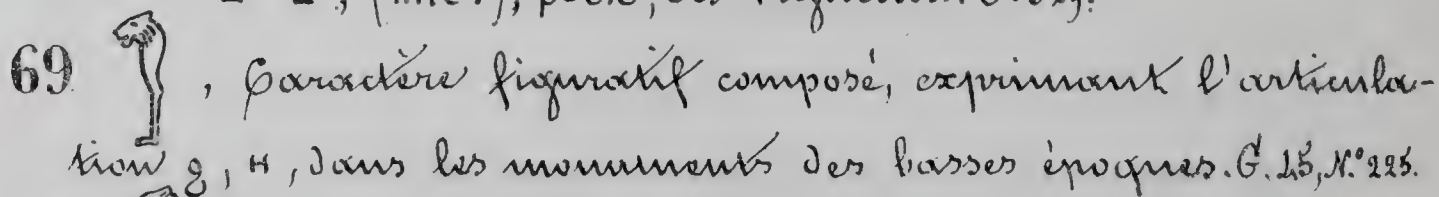 69 , Caractère figuratif composé, exprimant l'articula-
tion ϩ, H, dans les monuments des basses époques. G. 45, N.° 225.